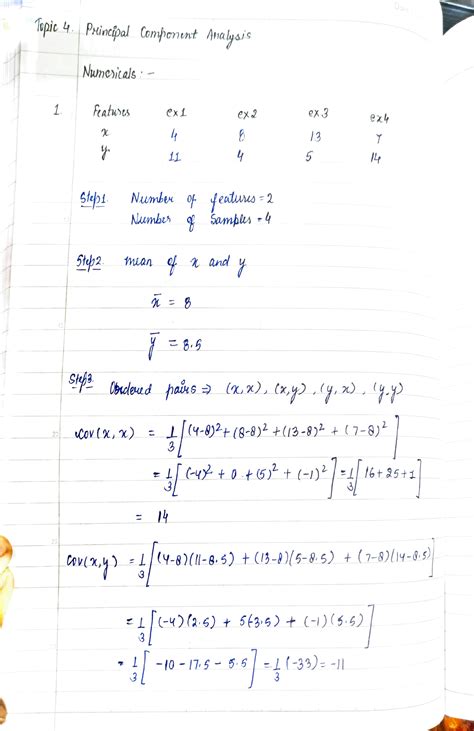 Topic 4. Principal Component Analysis
Numericals : -
1. Features ex1 ex2 ex3 ex4
x 4 8 13 7
y 11 4 5 14
Step1. Number of features = 2
Number of Samples = 4
Step2. mean of x and y
x̄ = 8
ȳ = 8.5
Step3. Ordered pairs ⇒ (x,x), (x,y), (y,x), (y,y)
Cov(x,x) = 1/3 [(4-8)² + (8-8)² + (13-8)² + (7-8)²]
= 1/3 [(-4)² + 0 + (5)² + (-1)²] = 1/3 [16 + 25 + 1]
= 14
Cov(x,y) = 1/3 [(4-8)(11-8.5) + (13-8)(5-8.5) + (7-8)(14-8.5)]
= 1/3 [(-4)(2.5) + 5(-3.5) + (-1)(5.5)]
= 1/3 [-10 - 17.5 - 5.5] = 1/3 (-33) = -11